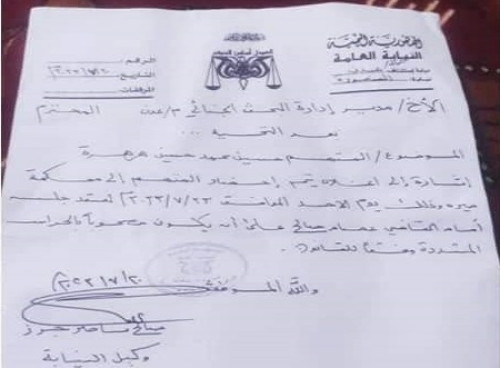 الجمهورية اليمنية
النيابة العامة
العدل أساس الحكم
الرقم :
التاريخ : ٢٠٢٣/٧/٢٠
المرفقات:
الأخ/ مدير إدارة البحث الجنائي م/عدن المحترم
بعد التحية ...
الموضوع/ المتهم حسين محمد حسين هرهرة
إشارة إلى أعلاه يتم إحضار المتهم إلى محكمة
صيره وذلك يوم الاحد الموافق ٢٠٢٣/٧/٢٣ لعقد جلسه
أمام القاضي عصام صالح على أن يكون مصحوباً بالحراسة
المشددة وفقاً للقانون.
والله الموفق
٢٠٢٣/٧/٢٠
صالح ناصر
وكيل النيابة